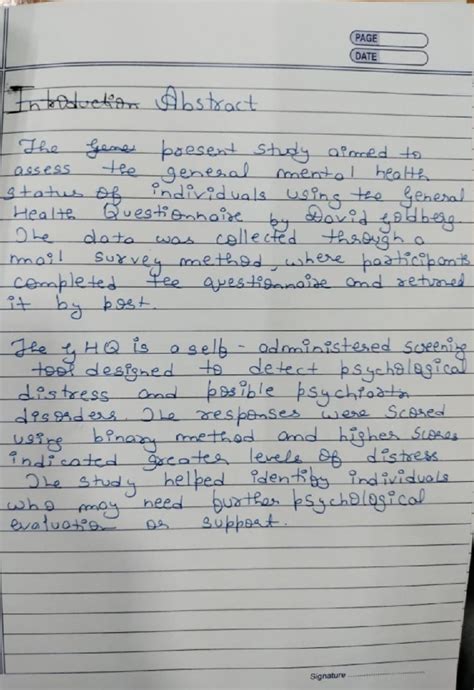 PAGE
DATE
Introduction Abstract
The Gene present study aimed to
assess the general mental health
status of individuals using the General
Health Questionnaire by David Goldberg.
The data was collected through a
mail survey method, where participants
completed the questionnaire and returned
it by post.
The GHQ is a self-administered screening
tool designed to detect psychological
distress and posible psychiatr
disorders. The responses were scored
using binary method and higher scores
indicated greater levels of distress
The study helped identify individuals
who may need further psychological
evaluation or support.
Signature